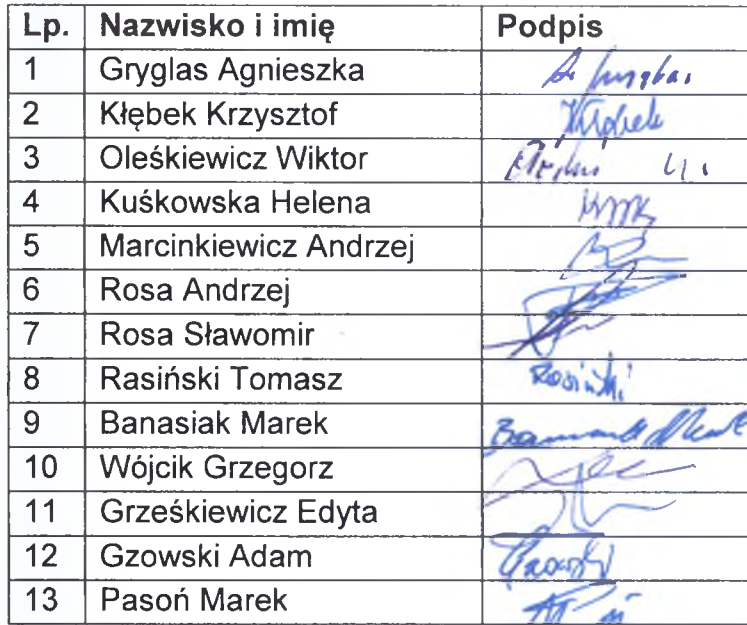 Lp. Nazwisko i imię Podpis
1 Gryglas Agnieszka
2 Kłębek Krzysztof Kłębek
3 Oleśkiewicz Wiktor
4 Kuśkowska Helena
5 Marcinkiewicz Andrzej
6 Rosa Andrzej
7 Rosa Sławomir
8 Rasiński Tomasz Rasiński
9 Banasiak Marek Banasiak Marek
10 Wójcik Grzegorz
11 Grześkiewicz Edyta
12 Gzowski Adam Gzowski
13 Pasoń Marek